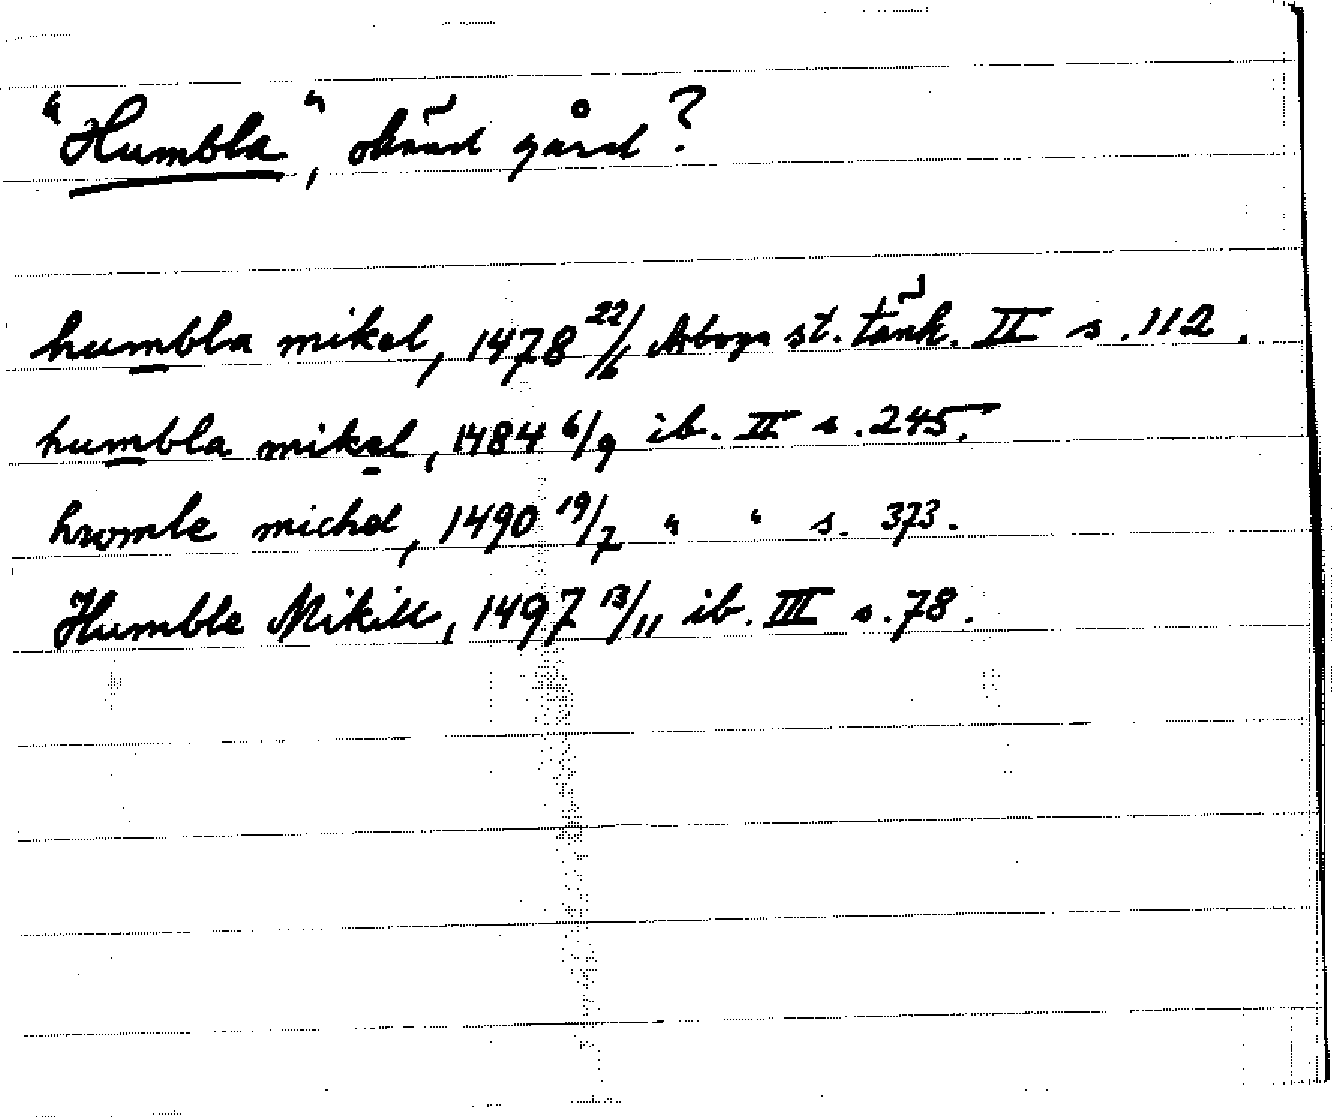 "Humbla", okänd gård?
humbla mikel, 1478 22/6 Arboga st. tänk. II s. 112.
humbla mikel, 1484 6/9 ib. II s. 245.
hwmle michel, 1490 19/7 " " s. 373.
Humble Mikill, 1497 13/11 ib. III s. 78.